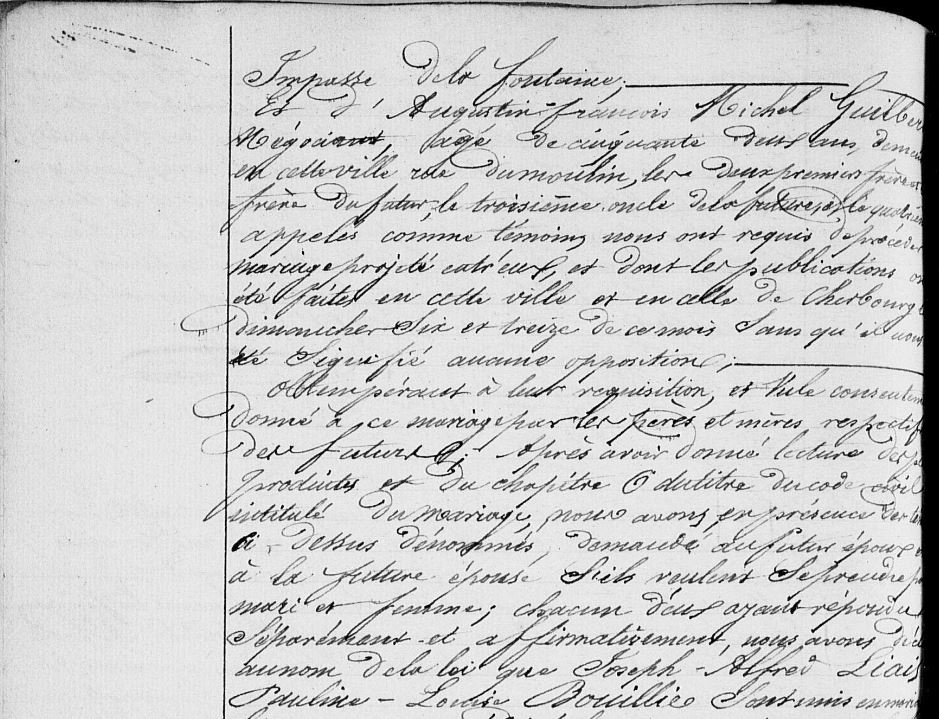 Impasse de la fontaine;
Et d'Augustin-françois Michel Guilber
Négociant, âgé de cinquante deux ans, demeu
en cette ville rue du moulin, les deux premiers frère
frère du futur, le troisième oncle de la future, le quatrièm
appelés comme témoins nous ont requis de procéder
mariage projeté entr'eux, et dont les publications on
été faites en cette ville et en celle de Cherbourg
dimanches Six et treize de ce mois Sans qu'il nous
été Signifié aucune opposition;
Obtempérant à leur requisition, et Vu le consentem
donné à ce mariage par les pères et mères respectif
des futurs; Après avoir donné lecture des
produites et du chapitre 6 du titre du code civil
intitulé du mariage, nous avons en présence des
ci-dessus dénommés, demandé au futur époux
à la future épouse S'ils veulent Se prendre po
mari et femme; chacun d'eux ayant répondu
Séparément et affirmativement, nous avons déc
au nom de la loi que Joseph-Alfred Liais
Pauline-Louise Bouillie Sont unis en mari